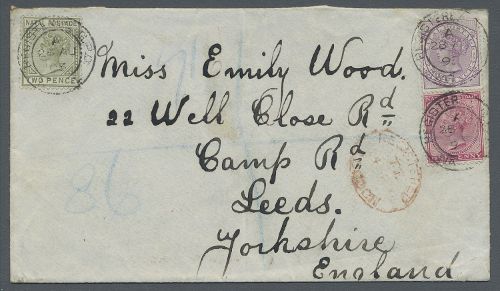 NATAL POSTAGE
TWO PENCE
Miss Emily Wood.
22 Well Close Rd
Camp Rd
Leeds.
Yorkshire
England
86